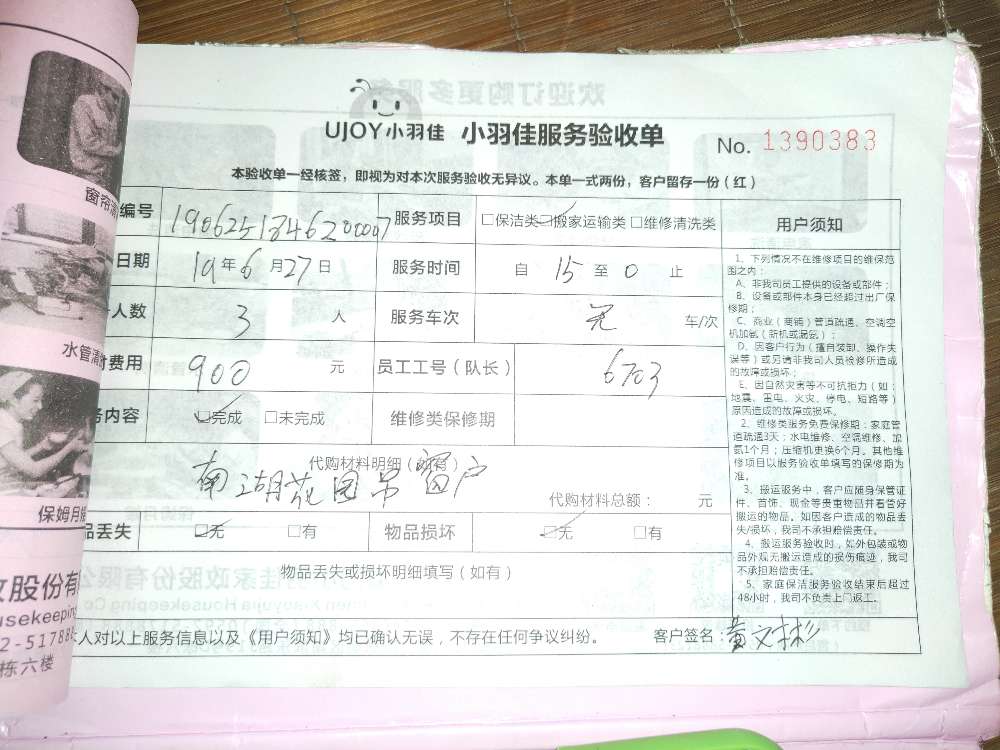 UJOY小羽佳 小羽佳服务验收单 No. 1390383
本验收单一经核签，即视为对本次服务验收无异议。本单一式两份，客户留存一份（红）
编号 190625184620007 服务项目 □保洁类 ☑搬家运输类 □维修清洗类 用户须知
日期 19年6月27日 服务时间 自 15 至 0 止
人数 3 人 服务车次 无 车/次
费用 900 元 员工工号（队长） 6703
内容 ☑完成 □未完成 维修类保修期
代购材料明细（如有）
南湖花园吊窗户
代购材料总额： 元
品丢失 ☑无 □有 物品损坏 ☑无 □有
物品丢失或损坏明细填写（如有）
人对以上服务信息以及《用户须知》均已确认无误，不存在任何争议纠纷。 客户签名：黄文彬
1、下列情况不在维修项目的维保范
围之内：
A、非我司员工提供的设备或部件；
B、设备或部件本身已经超过出厂保
修期；
C、商业（商铺）管道疏通、空调空
机加氨（新机或漏氨）；
D、因客户行为（擅自装卸、操作失
误等）或另请非我司人员检修所造成
的故障或损坏；
E、因自然灾害等不可抗拒力（如：
地震、雷电、火灾、停电、短路等）
原因造成的故障或损坏。
2、维修类服务免费保修期：家庭管
道疏通3天；水电维修、空调维修、加
氨1个月；压缩机更换6个月。其他维
修项目以服务验收单填写的保修期为
准。
3、搬运服务中，客户应随身保管证
件、首饰、现金等贵重物品并看管好
搬运的物品。如因客户造成的物品丢
失/损坏，我司不承担赔偿责任。
4、搬运服务验收时，如外包装或物
品外观无搬运造成的损伤痕迹，我司
不承担赔偿责任。
5、家庭保洁服务验收结束后超过
48小时，我司不负责上门返工。
窗帘清
水管清
保姆月嫂
政股份有
usekeeping
2-51788
栋六楼